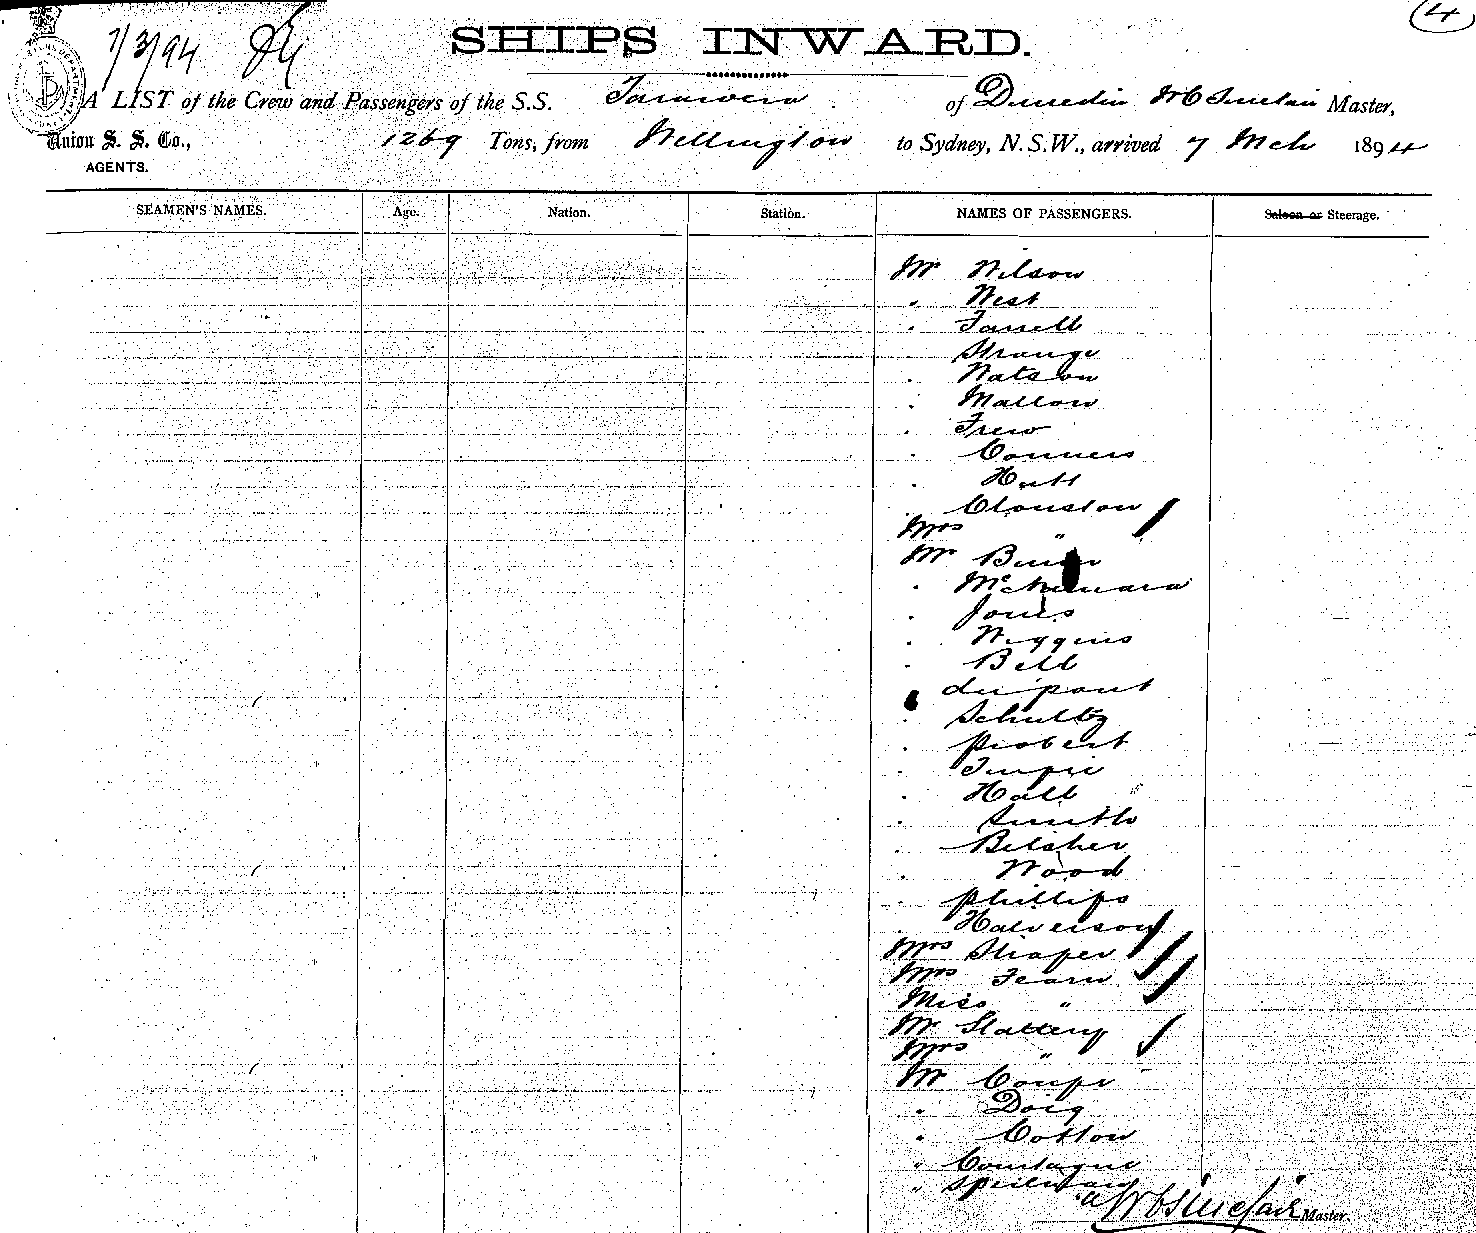 4
7/3/94
SHIPS INWARD.
A LIST of the Crew and Passengers of the S.S. Tarawera of Dunedin W C Sinclair Master,
Union S. S. Co., 1269 Tons, from Wellington to Sydney, N.S.W., arrived 7 Mch 1894
AGENTS.
SEAMEN'S NAMES. Age. Nation. Station. NAMES OF PASSENGERS. Saloon or Steerage.
Mr Wilson
. West
. Farrell
Strange
. Watson
. Mallow
. Frew
. Conners
. Hutt
. Clouston
Mrs "
Mr
. McNamara
. Jones
. Wiggins
. Bell
du pont
. Schultz
. probert
.
. Hall
. Smith
. Belsher
. Wood
. phillips
. Halverson
Mrs Shaper
Mrs Fearn
Miss "
Mr Slattery
Mrs "
Mr Coupe
. Doig
. Cotton
"
" Speilman
W C Sinclair Master.